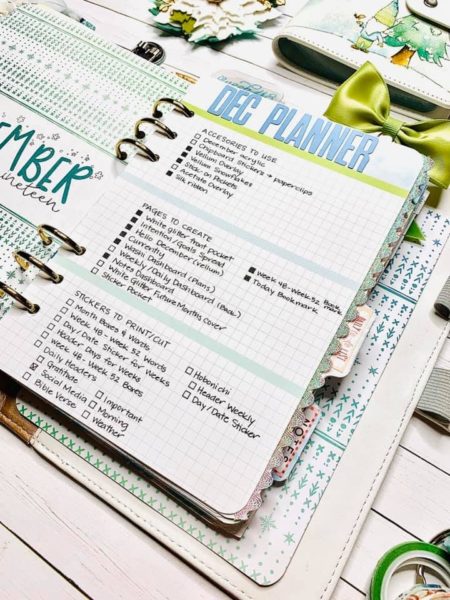 EMBER
nineteen
DEC PLANNER
ACCESORIES TO USE
December acrylic
Chipboard Stickers → paperclips
Vellum Overlay
Vellum Snowflakes
Stick on Pockets
Acetate Overlay
Silk ribbon
PAGES TO CREATE
White Glitter front Pocket
Intention/Goals Spread
Hello December (vellum)
Currently
Washi Dashboard (Plans)
Weekly/Daily Dashboard (Back)
Notes Dashboard
White Glitter Future Months cover
Sticker Pocket
Week 48 - Week 52 Book
mark
Today Bookmark
STICKERS TO PRINT/CUT
Month Boxes & Words
Week 48 - Week 52 Words
Day/Date Sticker for Weeks
Header Days for Weeks
Week 48 - Week 52 Boxes
Daily Headers
Gratitude
Social Media
Bible Verse
Important
Morning
Weather
Hobonichi
Header Weekly
Day/Date Sticker
NOTES